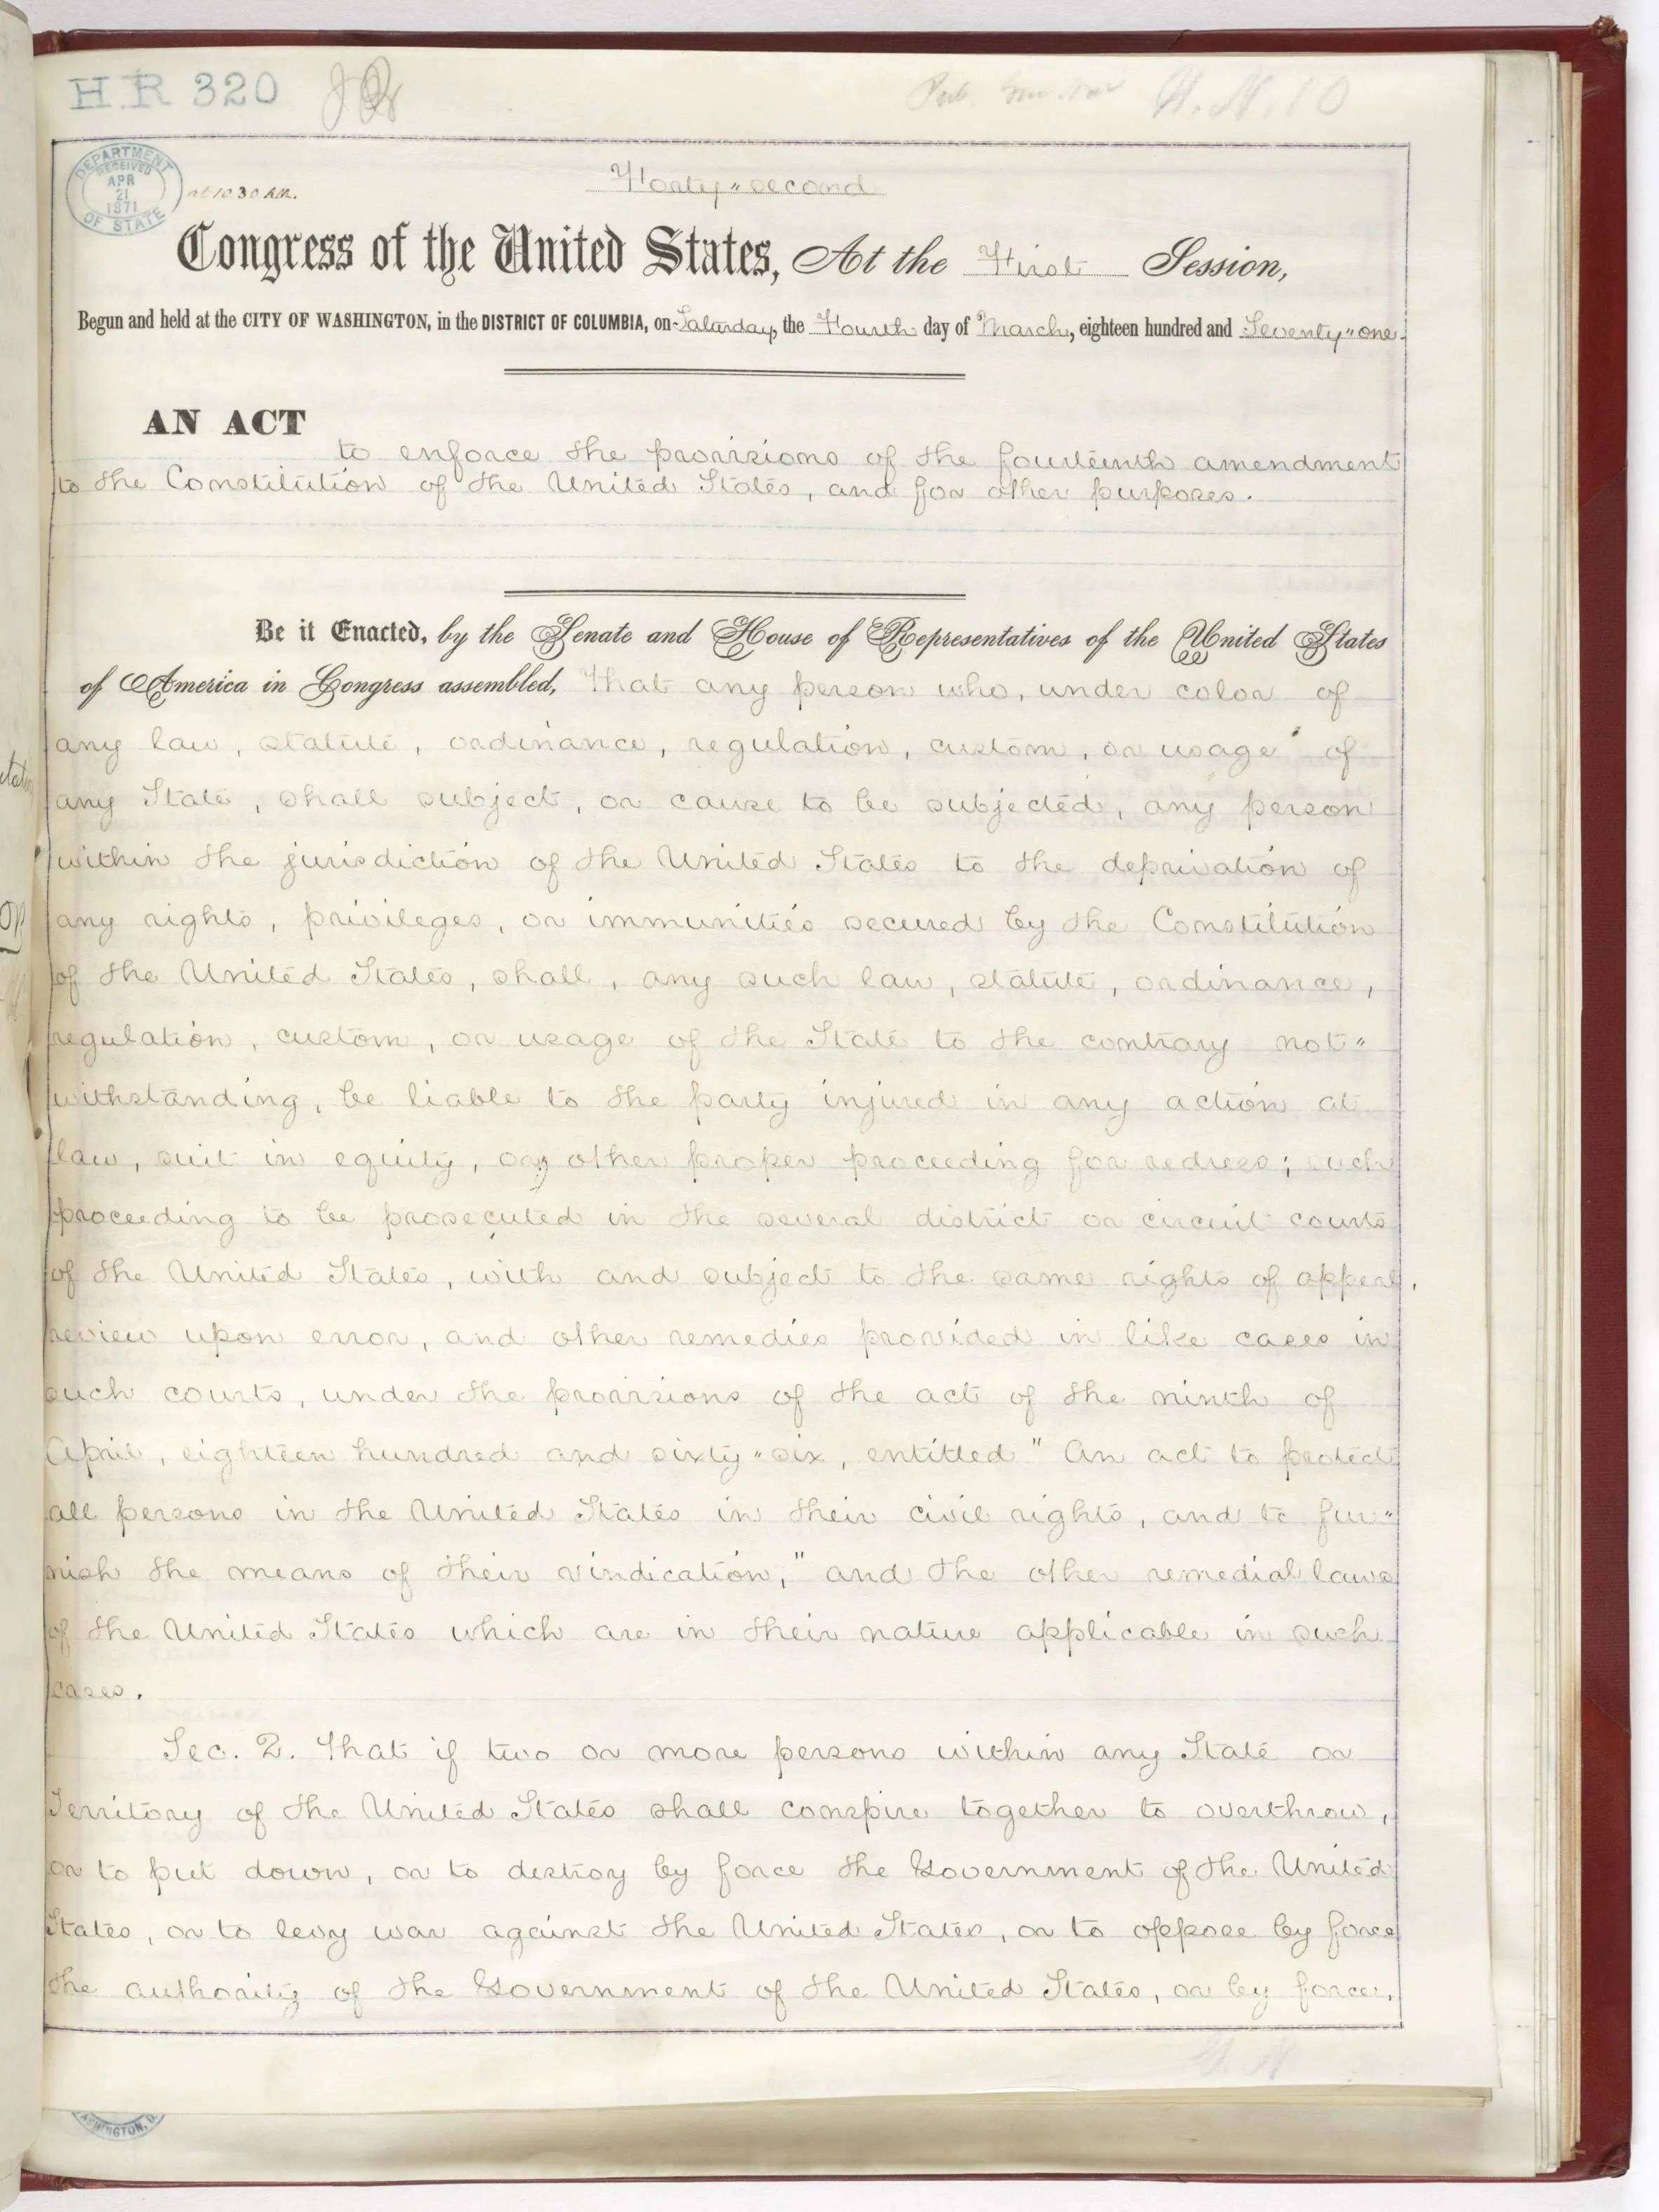 H.R 320
H.N.10
DEPARTMENT OF STATE
RECEIVED
APR
21
1871
at 10.30 A.M.
Forty-second
Congress of the United States, At the First Session,
Begun and held at the CITY OF WASHINGTON, in the DISTRICT OF COLUMBIA, on Saturday, the Fourth day of March, eighteen hundred and Seventy-one.
AN ACT
to enforce the provisions of the fourteenth amendment
to the Constitution of the United States, and for other purposes.
Be it Enacted, by the Senate and House of Representatives of the United States
of America in Congress assembled, That any person who, under color of
any law, statute, ordinance, regulation, custom, or usage of
any State, shall subject, or cause to be subjected, any person
within the jurisdiction of the United States to the deprivation of
any rights, privileges, or immunities secured by the Constitution
of the United States, shall, any such law, statute, ordinance,
regulation, custom, or usage of the State to the contrary not-
withstanding, be liable to the party injured in any action at
law, suit in equity, or other proper proceeding for redress; such
proceeding to be prosecuted in the several district or circuit courts
of the United States, with and subject to the same rights of appeal,
review upon error, and other remedies provided in like cases in
such courts, under the provisions of the act of the ninth of
April, eighteen hundred and sixty-six, entitled "An act to protect
all persons in the United States in their civil rights, and to fur-
nish the means of their vindication," and the other remedial laws
of the United States which are in their nature applicable in such
cases.
Sec. 2. That if two or more persons within any State or
Territory of the United States shall conspire together to overthrow,
or to put down, or to destroy by force the Government of the United
States, or to levy war against the United States, or to oppose by force
the authority of the Government of the United States, or by force,